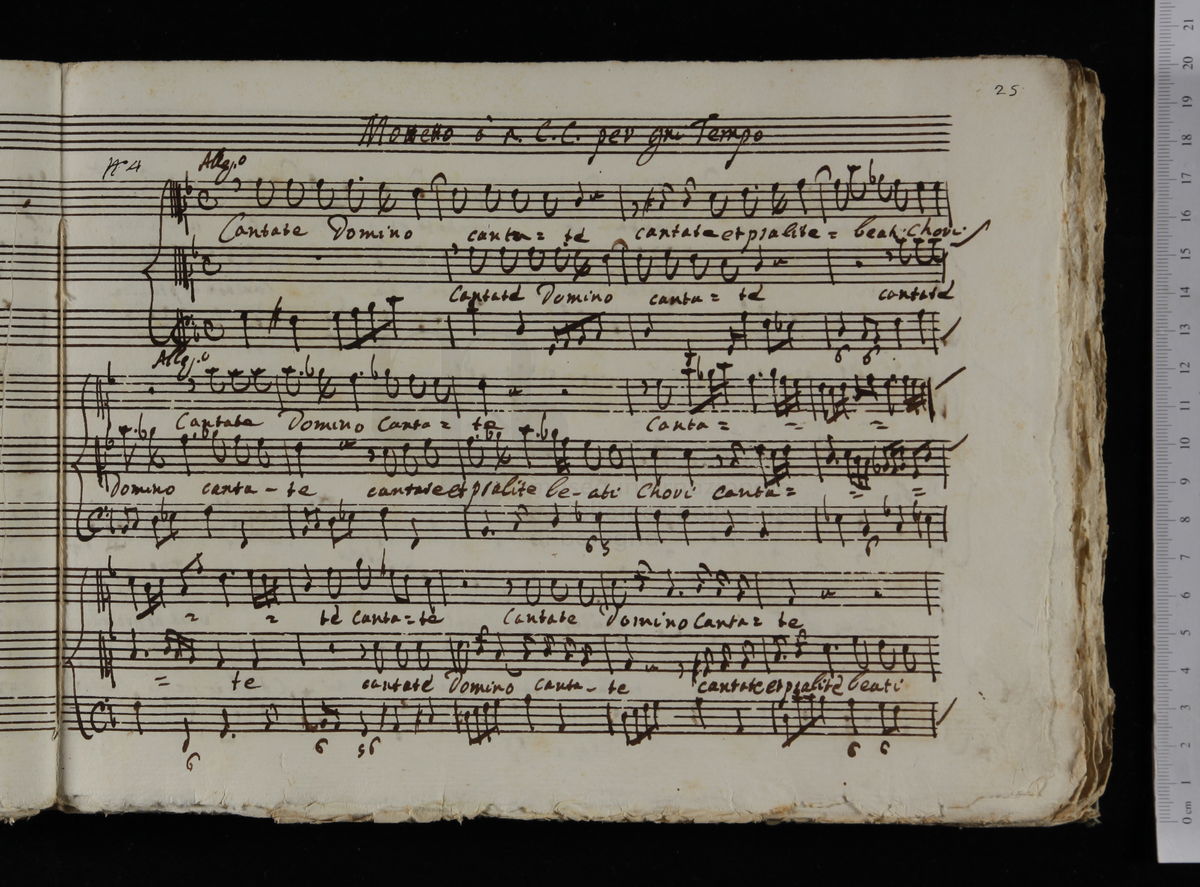 25
Mottetto à 2. C. C. per ogni Tempo
N° 4
Alleg.o
Cantate Domino canta = te cantate et psalite = beati Chori
Cantate Domino canta = te cantate
6 6
Alleg.o
Cantate Domino Canta = te Canta = = =
Domino canta - te cantate et psalite be - ati Chori canta = = =
6 5 6
= = te canta = te Cantate Domino Canta = te
= te cantate Domino canta - te cantate et psalite beati
6 6 5 6 6 6